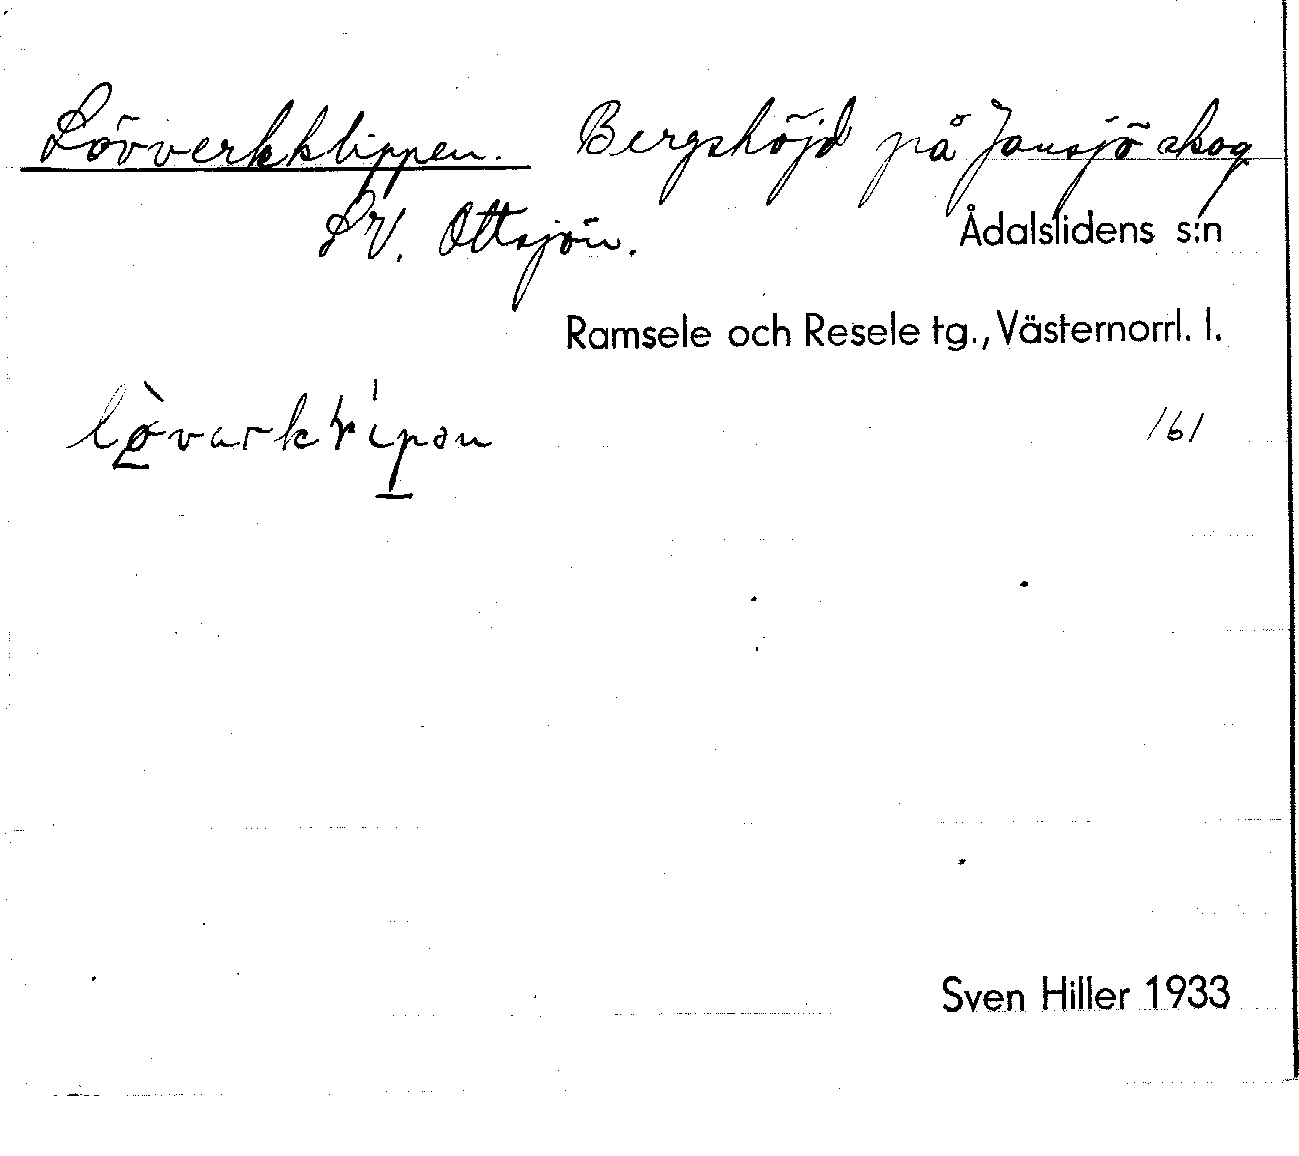 Lövverkklippen. Bergshöjd på Jansjö skog
SV. Ottsjön.
Ådalslidens s:n
Ramsele och Resele tg., Västernorrl. l.
161
Sven Hiller 1933